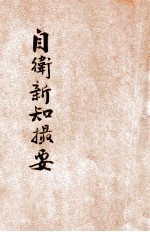 自衛新知撮要